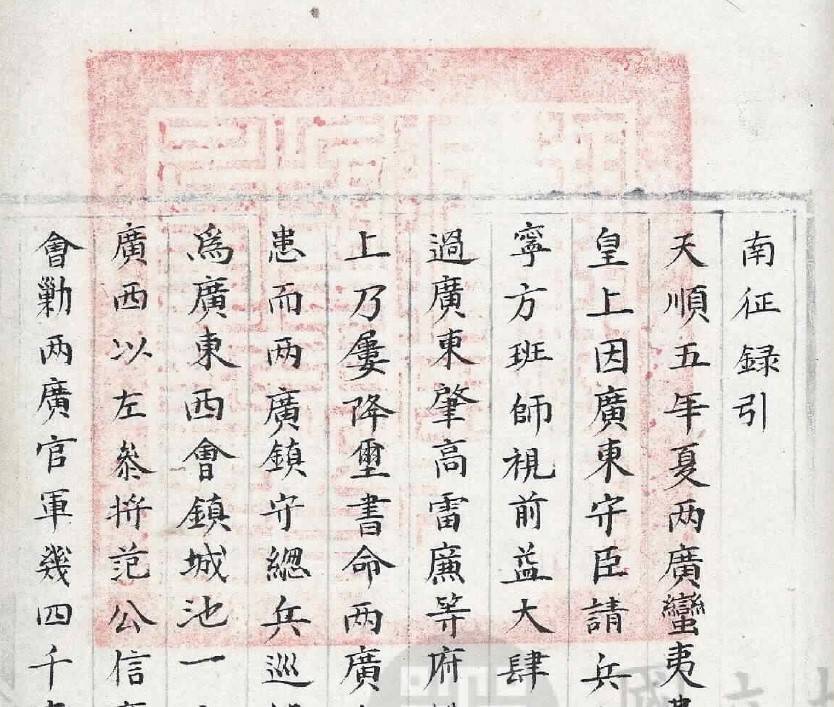 南征録引
天順五年夏两廣蠻夷
皇上因廣東守臣請兵
寧方班師視前益大肆
過廣東肇高雷廉等府
上乃屢降璽書命两廣
患而两廣鎮守總兵巡
爲廣東西會鎮城池一
廣西以左叅將范公信
會勦两廣官軍幾四千